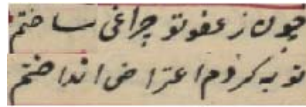 چون ز عفو تو چراغی ساختم
توبه کردم اعتراض انداختم